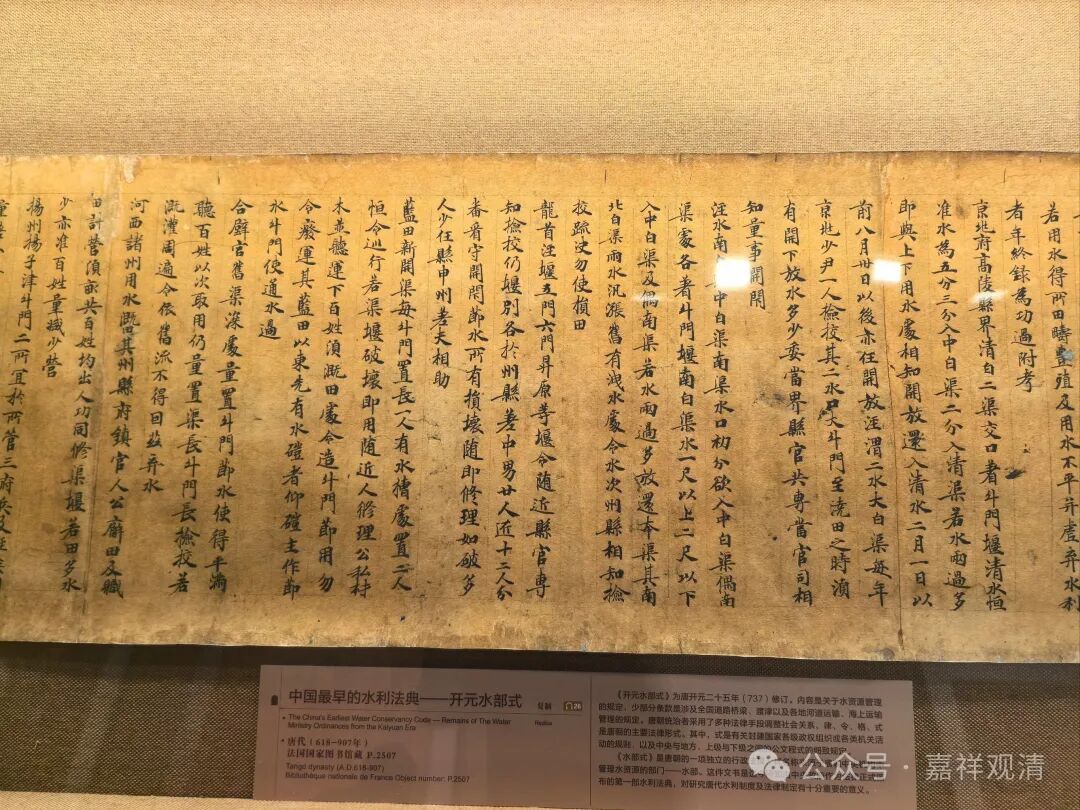 若用水得所田疇豐殖及用水不平并虛弃水利
者年終錄為功過附考
京兆府高陵縣界清白二渠交口著斗門堰清水恒
准水為五分三分入中白渠二分入清渠若水雨過多
即與上下用水處相知開放還入清水二月一日以
前八月卅日以後亦任開放涇渭二水大白渠每年
京兆少尹一人檢校其二水口大斗門至澆田之時須
有開下放水多少委當界縣官共專當官司相
知量事開閇
涇水南中白渠南渠水口初分欲入中白渠偶南
渠處各著斗門堰南白渠水一尺以上二尺以下
入中白渠及偶南渠若水雨過多放還本渠其南
北白渠雨水汎漲舊有洩水處令水次州縣相知檢
校疏決勿使損田
龍首涇堰五門六門昇原等堰令隨近縣官專
知檢校仍堰別各於州縣差中男廿人近十二人分
番看守開閇節水所有損壞隨即修理如破多
人少任縣申州差夫相助
藍田新開渠每斗門置長一人有水槽處置二人
恒令巡行若渠堰破壞即用隨近人修理公私材
木並聽運下百姓須溉田處令造斗門節用勿
令廢運其藍田以東先有水磑者仰磑主作節
水斗門使通水過
合璧宮舊渠深處量置斗門節水使得平滿
聽百姓以次取用仍量置渠長斗門長檢校若
溉灌周遍令依舊流不得回茲弃水
河西諸州用水溉田其州縣府鎮官人公廨田及職
田計營頃畝共百姓均出人功同修渠堰若田多水
少亦准百姓量減少營
揚州揚子津斗門二所宜於所管三府兵及
中国最早的水利法典——开元水部式 复制
The China's Earliest Water Conservancy Code — Remains of The Water Ministry Ordinances from the Kaiyuan Era Replica
26
唐代（618-907年）
法国国家图书馆藏 P.2507
Tang dynasty (A.D.618-907)
Bibliothèque nationale de France Object number: P.2507
《开元水部式》为唐开元二十五年（737）修订，内容是关于水资源管理
的规定，少部分条款是涉及全国道路桥梁、关津以及各地河道运输、海上运输
管理的规定。唐朝统治者采用了多种法律手段调整社会关系，律、令、格、式
是唐朝的主要法律形式。其中，式是有关封建国家各级政权组织或各类机关活
动的规则，以及中央与地方、上级与下级之间的公文程式的细致规定。
《水部式》是唐朝的一项独立的行政
管理水资源的部门——水部。这件文书是
布的第一部水利法典，对研究唐代水利制度及法律制定有十分重要的意义。
公众号·嘉祥观清